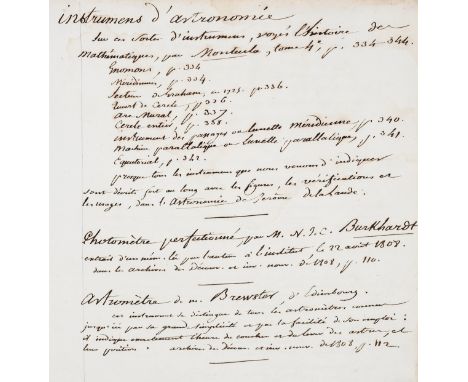 instrumens d'astronomie
Sur ces sortes d'instrumens, voyez l'histoire des
mathématiques, par Montucla, tome 4e, p. 334-344.
Gnomons, p. 334
Méridiennes, p. 334.
Secteur de Graham, en 1725. p. 336.
Quart de Cercle, p. 336.
Arc Mural, p. 337.
Cercle entier, p. 338.
instrument des passages ou lunette méridienne, p. 340.
Machine parallatique ou lunette parallatique, p. 341.
Equatorial, p. 342.
presque tous les instrumens que nous venons d'indiquer
sont décrits fort au long avec les figures, les vérifications et
les usages, dans l'Astronomie de Jerôme de la Lande.
Photomètre perfectionné, par M. N. J. C. Burkhardt
extrait d'un mém. lu par l'auteur à l'institut le 22 août 1808.
dans les archives des Découv. et inv. nouv. de 1808, p. 110.
Astromètre de m. Brewster, d'Edimbourg.
cet instrument se distingue de tous les astromètres connus
jusqu'ici par sa grande simplicité et par la facilité de son emploi :
il indique exactement l'heure du coucher et du lever des astres, et
leur position. archives des découv. et inv. nouv. de 1808, p. 112.